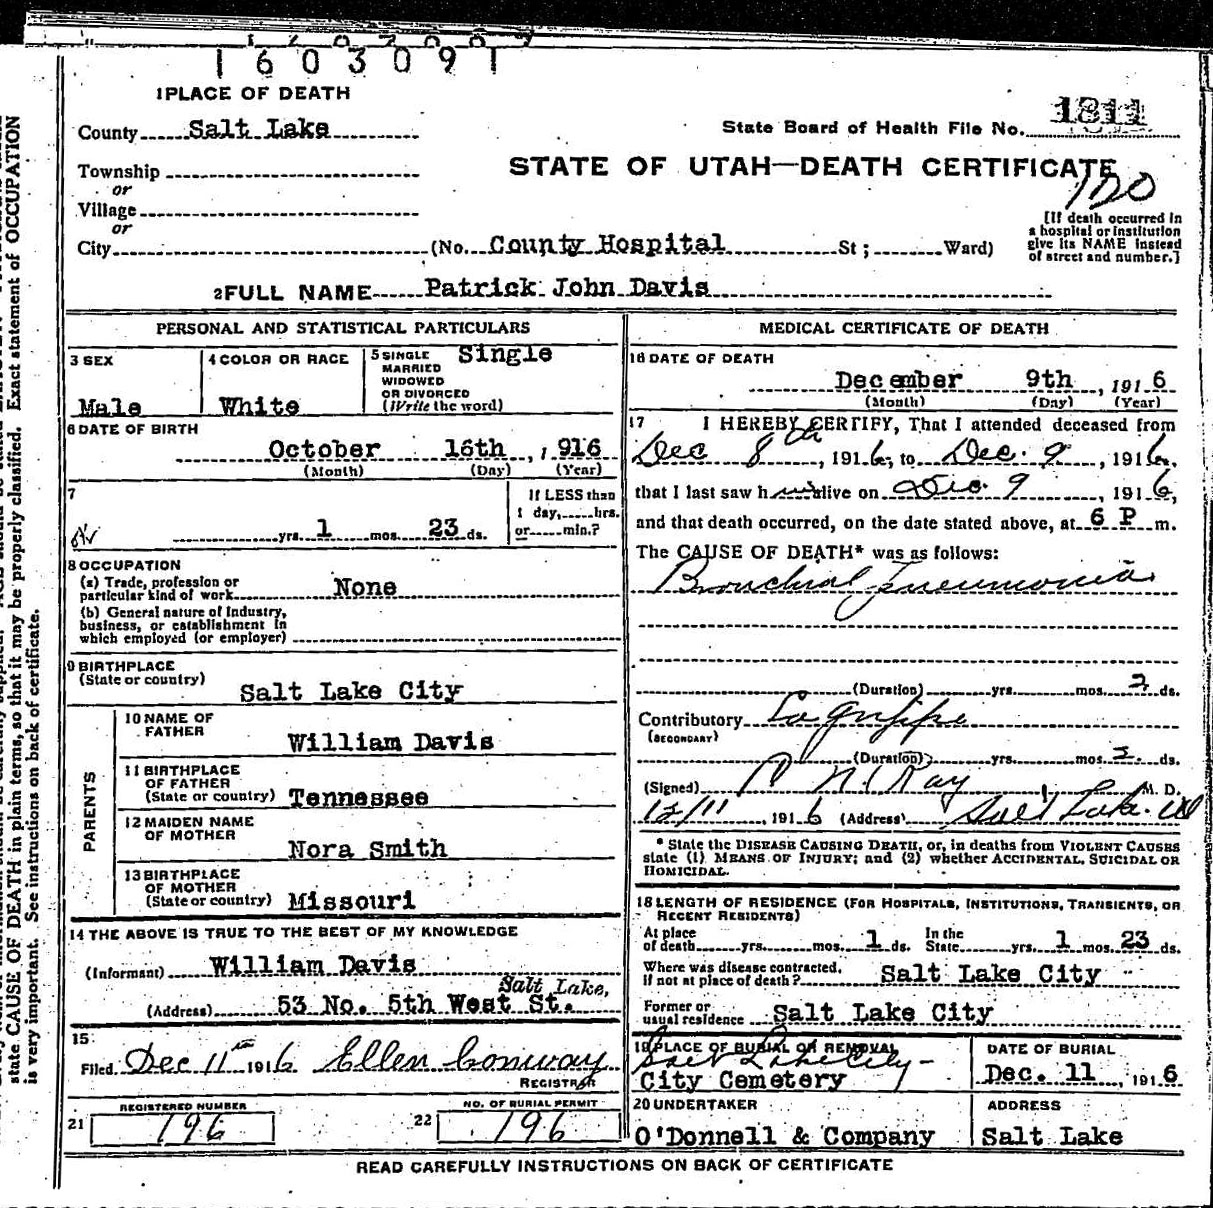 1603091
1 PLACE OF DEATH
County Salt Lake
State Board of Health File No. 1811
Township
or
Village
or
City (No. County Hospital St; Ward)
STATE OF UTAH—DEATH CERTIFICATE
120
[If death occurred in
a hospital or institution
give its NAME instead
of street and number.]
2 FULL NAME Patrick John Davis
PERSONAL AND STATISTICAL PARTICULARS
3 SEX
Male
4 COLOR OR RACE
White
5 SINGLE
MARRIED
WIDOWED
OR DIVORCED
(Write the word)
Single
6 DATE OF BIRTH
October 16th, 1916
(Month) (Day) (Year)
7
yrs. 1 mos. 23 ds.
If LESS than
1 day, hrs.
or min.?
8 OCCUPATION
(a) Trade, profession or
particular kind of work None
(b) General nature of Industry,
business, or establishment in
which employed (or employer)
9 BIRTHPLACE
(State or country)
Salt Lake City
PARENTS
10 NAME OF
FATHER
William Davis
11 BIRTHPLACE
OF FATHER
(State or country) Tennessee
12 MAIDEN NAME
OF MOTHER
Nora Smith
13 BIRTHPLACE
OF MOTHER
(State or country) Missouri
14 THE ABOVE IS TRUE TO THE BEST OF MY KNOWLEDGE
(Informant) William Davis
Salt Lake,
(Address) 53 No. 5th West St.
15
Filed Dec 11th 1916 Ellen Conway
REGISTRAR
REGISTERED NUMBER
21 196
NO. OF BURIAL PERMIT
22 196
MEDICAL CERTIFICATE OF DEATH
16 DATE OF DEATH
December 9th, 1916
(Month) (Day) (Year)
17 I HEREBY CERTIFY, That I attended deceased from
Dec 8th, 1916, to Dec. 9, 1916,
that I last saw him alive on Dec. 9, 1916,
and that death occurred, on the date stated above, at 6 P m.
The CAUSE OF DEATH* was as follows:
Bronchial Pneumonia
(Duration) yrs. mos. 2 ds.
Contributory La Grippe
(SECONDARY)
(Duration) yrs. mos. ds.
(Signed) M. D.
12/11, 1916 (Address) Salt Lake.
* State the DISEASE CAUSING DEATH, or, in deaths from VIOLENT CAUSES
state (1) MEANS OF INJURY; and (2) whether ACCIDENTAL, SUICIDAL OR
HOMICIDAL.
18 LENGTH OF RESIDENCE (FOR HOSPITALS, INSTITUTIONS, TRANSIENTS, OR
RECENT RESIDENTS)
At place
of death yrs. mos. 1 ds.
In the
State yrs. 1 mos. 23 ds.
Where was disease contracted,
if not at place of death? Salt Lake City
Former or
usual residence Salt Lake City
19 PLACE OF BURIAL OR REMOVAL
Salt Lake City
City Cemetery
DATE OF BURIAL
Dec. 11, 1916
20 UNDERTAKER
O'Donnell & Company
ADDRESS
Salt Lake
READ CAREFULLY INSTRUCTIONS ON BACK OF CERTIFICATE
state CAUSE OF DEATH in plain terms, so that it may be properly classified. Exact statement of OCCUPATION
is very important. See instructions on back of certificate.